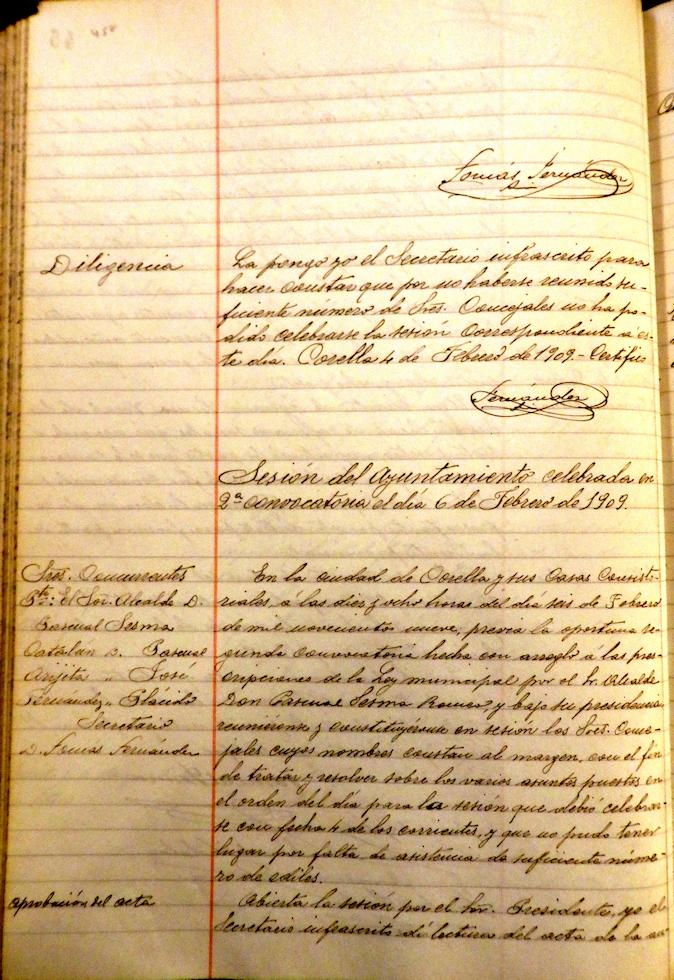 Tomás Fernández
Diligencia
La pongo yo el Secretario infrascrito para
hacer constar que por no haberse reunido su-
ficiente número de Sres. Concejales no ha po-
dido celebrarse la sesión correspondiente á es-
te día. Corella 4 de Febrero de 1909.- Certifico
Fernández
Sesión del Ayuntamiento celebrada en
2ª convocatoria el día 6 de Febrero de 1909.
Sres. Concurrentes
Pte: El Sor. Alcalde D.
Pascual Sesma
Catalán D. Pascual
Arijita " José
Fernández " Plácido
Secretario
D. Tomás Fernández
En la ciudad de Corella y sus Casas Consisto-
riales, á las diez y ocho horas del día seis de Febrero
de mil novecientos nueve, previa la oportuna se-
gunda convocatoria hecha con arreglo á las pres-
cripciones de la Ley municipal por el Sr. Alcalde
Don Pascual Sesma y bajo su presidencia,
reuniéronse y constituyéronse en sesión los Sres. Conce-
jales cuyos nombres constan al margen, con el fin
de tratar y resolver sobre los varios asuntos puestos en
el orden del día para la sesión que debió celebrar-
se con fecha 4 de los corrientes, y que no pudo tener
lugar por falta de asistencia de suficiente núme-
ro de ediles.
aprobación del acta
Abierta la sesión por el Sor. Presidente, yo el
Secretario infrascrito dí lectura del acta de la an